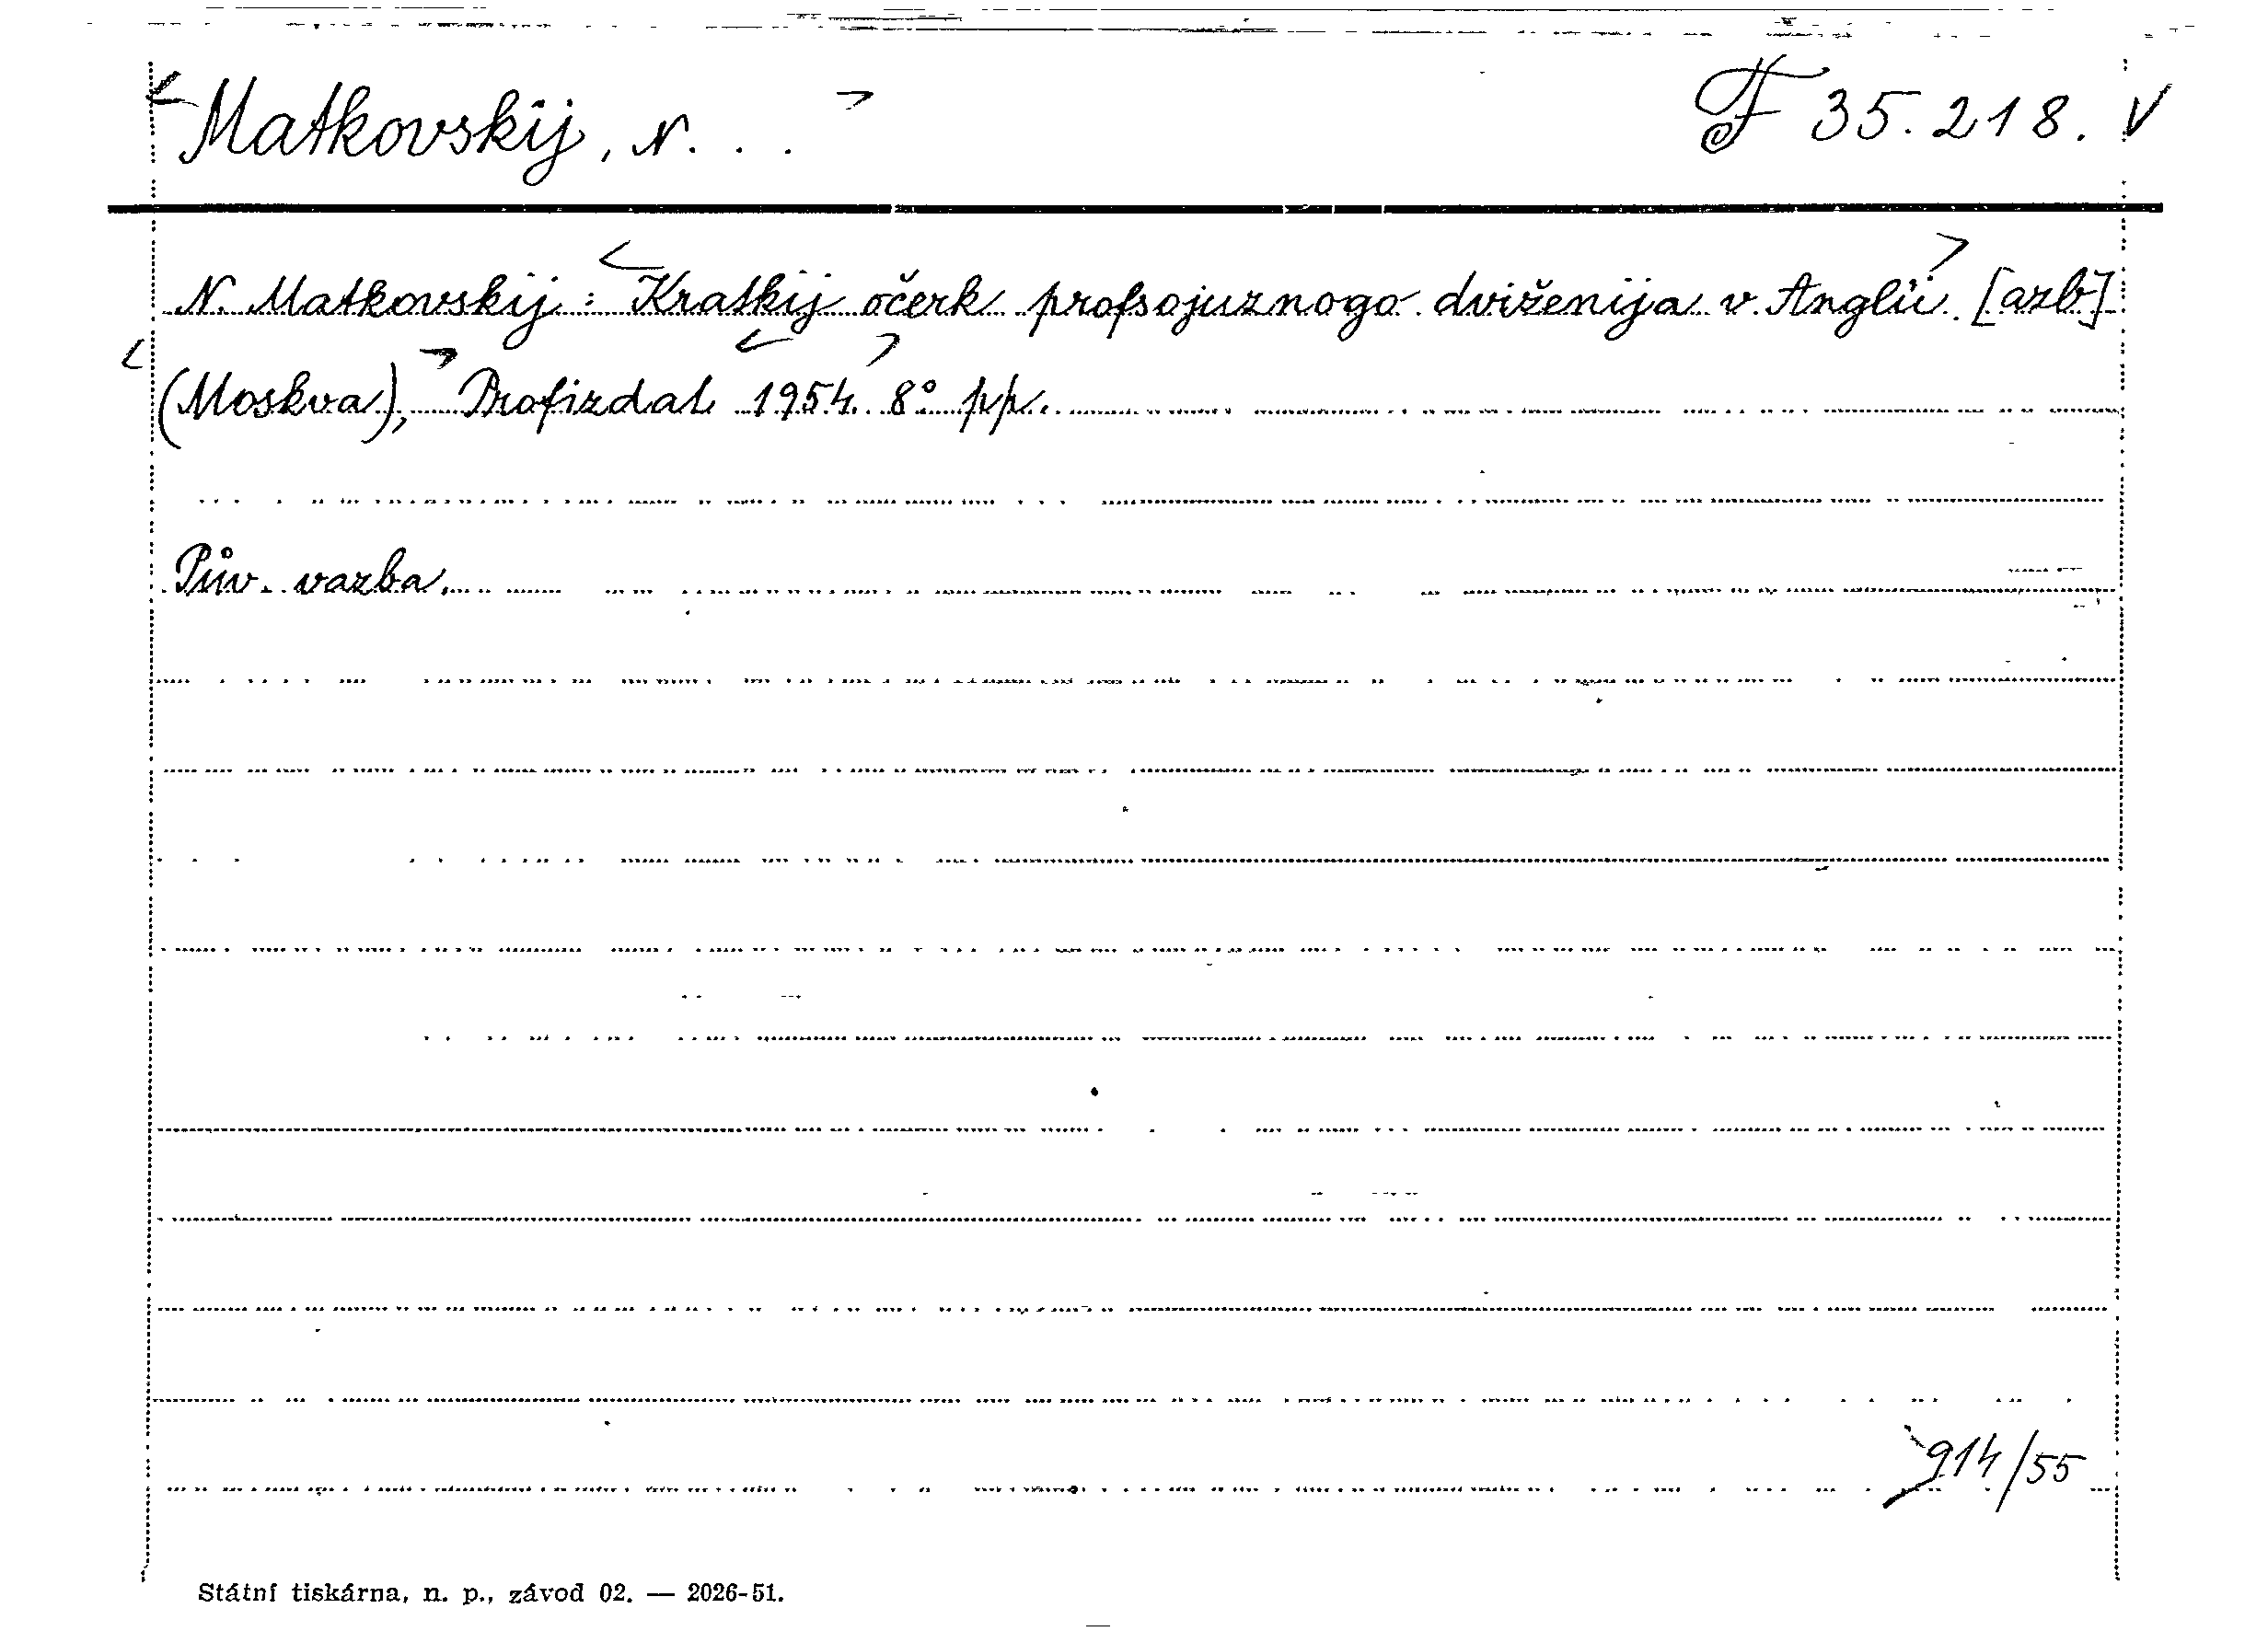 Matkovskij, N. . .
F 35.218. V
N. Matkovskij: Kratkij očerk profsojuznogo dviženija v Anglii. [azb]
(Moskva), Profizdat 1954. 8° pp.
Pův. vazba.
914/55
Státní tiskárna, n. p., závod 02. — 2026-51.